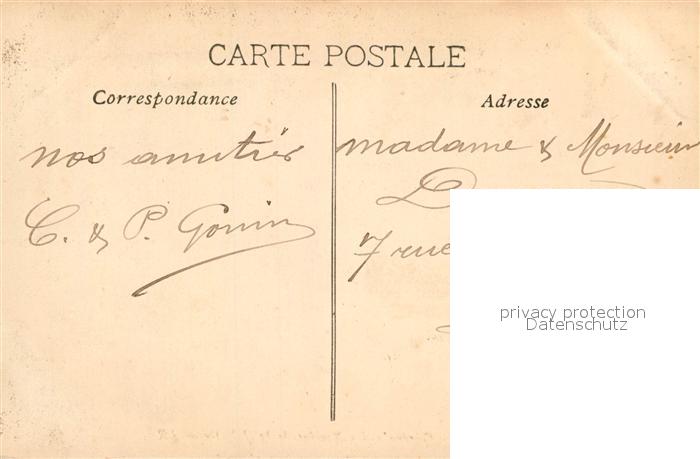 CARTE POSTALE
Correspondance
Adresse
nos amitiés
C. & P. Gouin
madame & Monsieur
D
7 rue
privacy protection
Datenschutz